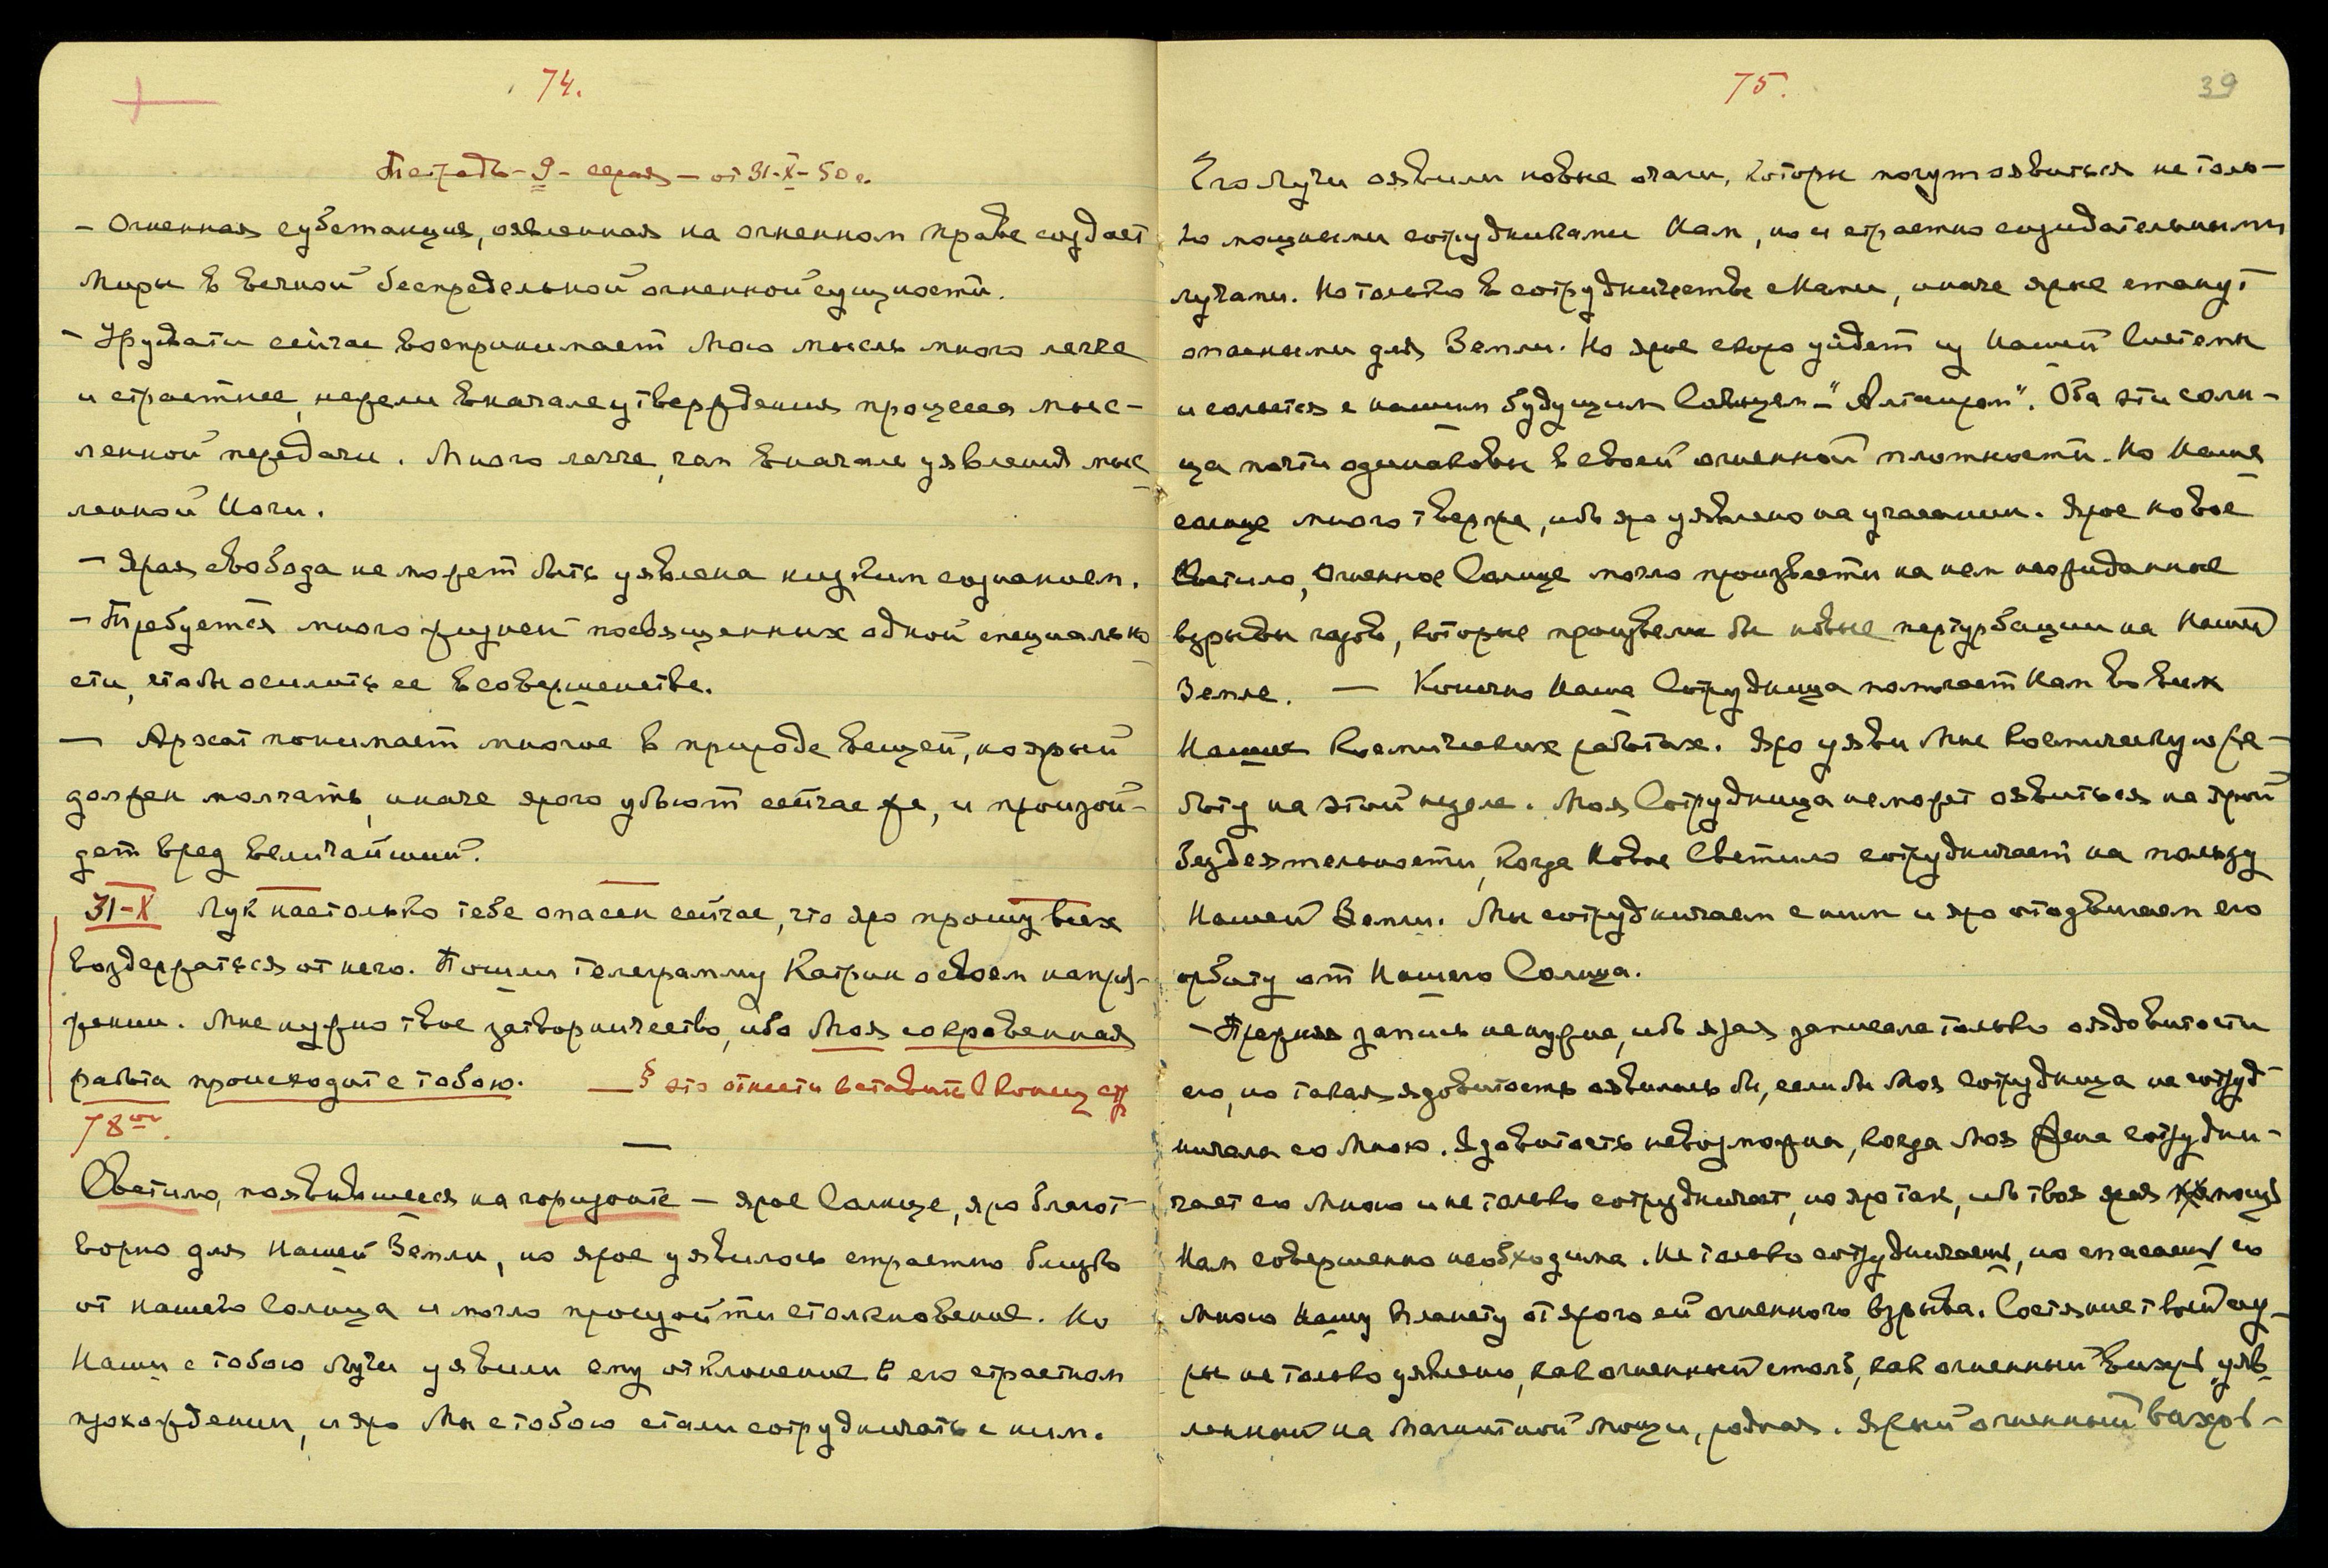 74.
Тетрадь - 9 - серая - от 31-X-50 г.
- Огненная субстанция, оявленная на огненном праве создает
миры в вечной беспредельной огненной сущности.
- Урувати сейчас воспринимает Мою мысль много легче
и страстнее, нежели вначале утверждения процесса мыс-
ленной передачи. Много легче, чем вначале уявления мыс
ленной Ночи.
- Ярая свобода не может быть уявлена низким сознанием.
- Требуется много жизней посвященных одной специально
сти, чтобы осилить ее в совершенстве.
- Архат понимает многое в природе вещей, но ярый
должен молчать, иначе ярого убьют сейчас же, и произой-
дет вред величайший.
31-X Лук настолько тебе опасен сейчас, что яро прошу всех
воздержаться от него. Пошли телеграмму Катрин о своем напря-
жении. Мне нужно твое затворничество, ибо Моя сокровенная
работа происходит с тобою. — § это отнести вставить в конец стр
78ой.
Светило, появившееся на горизонте — ярое Солнце, яро благот-
ворно для нашей Земли, но ярое уявилось страстно близко
от нашего Солнца и могло произойти столкновение. Но
Наши с тобою Лучи уявили ему отклонение в его страстном
прохождении, и яро Мы с тобою стали сотрудничать с ним.
75.
39
Его Лучи оявили новые очаги, которые могут оявиться не толь-
ко мощными сотрудниками Нам, но и страстно созидательными
лучами. Но только в сотрудничестве с Нами, иначе ярые станут
опасными для Земли. Но ярое скоро уйдет из Нашей Системы
и сольется с нашим будущим Солнцем - "Алтаиром". Оба эти солн-
ца почти одинаковы в своей огненной плотности. Но Наше
солнце много тверже, ибо яро уявлено на угасании. Ярое новое
Светило, Огненное Солнце могло произвести на нем неожиданные
взрывы газов, которые произвели бы новые пертурбации на Нашей
Земле. — Конечно Наша Сотрудница помогает Нам во всех
Наших Космических работах. Яро уяви Мне Космическую ра-
боту на этой неделе. Моя Сотрудница не может оявиться на ярой
бездеятельности, когда Новое Светило сотрудничает на пользу
Нашей Земли. Мы сотрудничаем с ним и яро отодвигаем его
орбиту от Нашего Солнца.
- Прежняя запись не нужна, ибо ярая записала только оядовитости
его, но такая ядовитость оявилась бы, если бы Моя Сотрудница не сотруд
ничала со Мною. Ядовитость невозможна, когда Моя Жена сотрудни-
чает со Мною и не только сотрудничает, но яро так, ибо твоя ярая помощь
Нам совершенно необходима. Не только сотрудничаешь, но спасаешь со
Мною Нашу Планету от ярого ей огненного взрыва. Состояние твоей ау-
ры не только уявлено, как огненный столб, как огненный вихрь, уяв
ленный на магнитной мощи, родная. Ярый огненный вихрь -